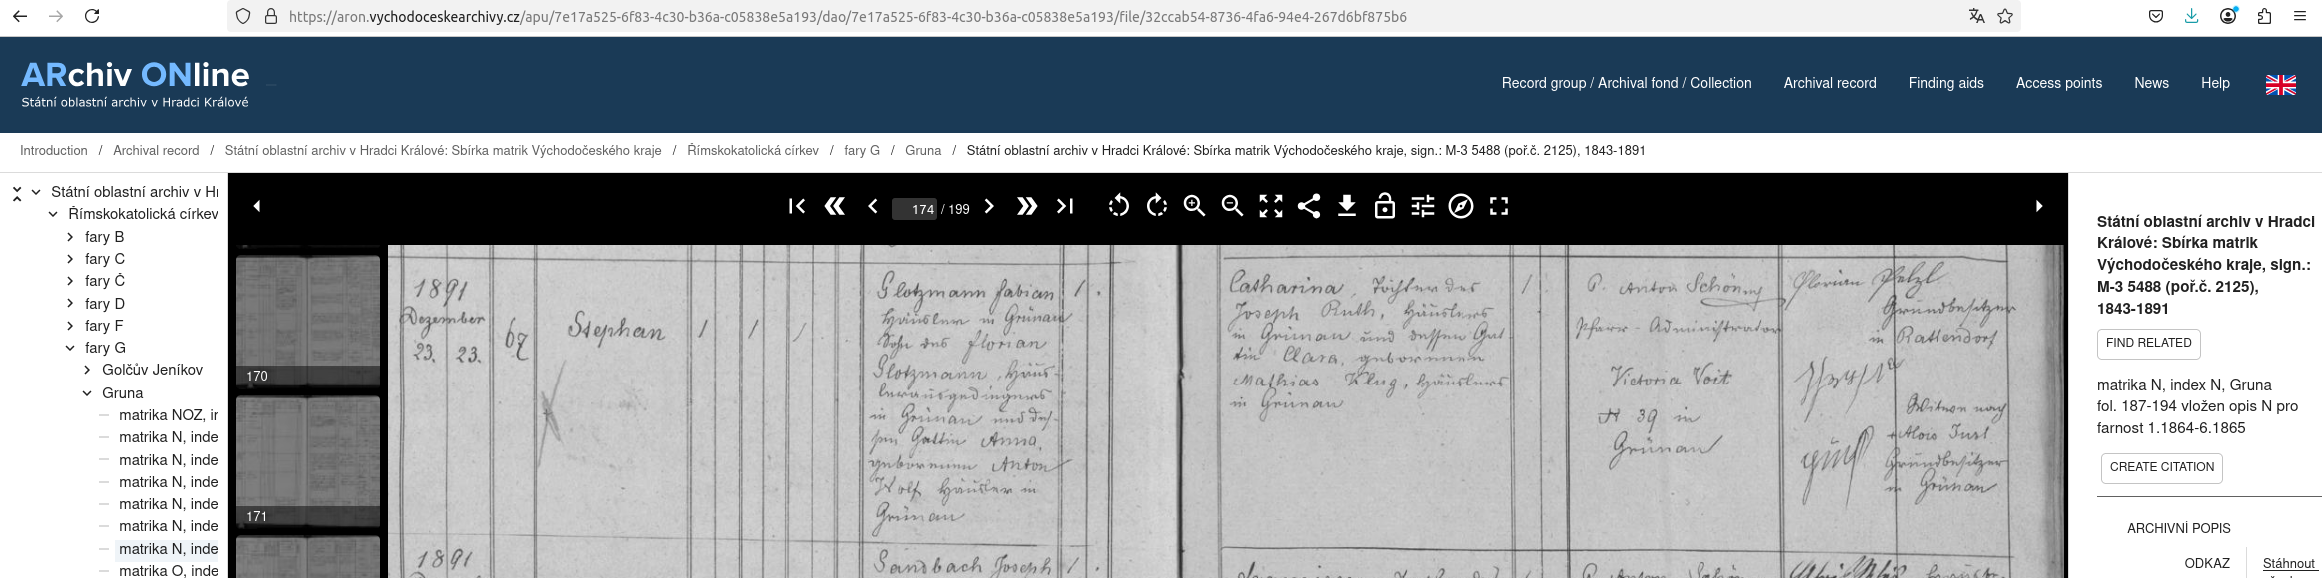 https://aron.vychodoceskearchivy.cz/apu/7e17a525-6f83-4c30-b36a-c05838e5a193/dao/7e17a525-6f83-4c30-b36a-c05838e5a193/file/32ccab54-8736-4fa6-94e4-267d6bf875b6
ARchiv ONline
Státní oblastní archiv v Hradci Králové
Record group / Archival fond / Collection
Archival record
Finding aids
Access points
News
Help
Introduction / Archival record / Státní oblastní archiv v Hradci Králové: Sbírka matrik Východočeského kraje / Římskokatolická církev / fary G / Gruna / Státní oblastní archiv v Hradci Králové: Sbírka matrik Východočeského kraje, sign.: M-3 5488 (poř.č. 2125), 1843-1891
Státní oblastní archiv v Hr
Římskokatolická církev
fary B
fary C
fary Č
fary D
fary F
fary G
Golčův Jeníkov
Gruna
matrika NOZ, ir
matrika N, inde
matrika N, inde
matrika N, inde
matrika N, inde
matrika N, inde
matrika N, inde
matrika O, inde
174 / 199
170
171
1891
Dezember
23. 23.
67
Stephan
1
1
1
Glotzmann Fabian
Häusler in Grünau
Sohn des Florian
Glotzmann, Häus-
lerausgedingers
in Grünau und des-
sen Gattin Anna,
geborenen Anton
Wolf Häusler in
Grünau
1.
Catharina, Tochter des
Joseph Ruth, Häuslers
in Grünau und dessen Gat-
tin Clara, geborenen
Mathias Klug, Häuslers
in Grünau
1
P. Anton
Pfarr-Administrator
Victoria Voit
39 in
Grünau
Florian Pelzl
Grundbesitzer
in Rattendorf
Witwe nach
Alois Just
Grundbesitzer
in Grünau
1891
Sandbach Joseph
1
Státní oblastní archiv v Hradci
Králové: Sbírka matrik
Východočeského kraje, sign.:
M-3 5488 (poř.č. 2125),
1843-1891
FIND RELATED
matrika N, index N, Gruna
fol. 187-194 vložen opis N pro
farnost 1.1864-6.1865
CREATE CITATION
ARCHIVNÍ POPIS
ODKAZ
Stáhnout